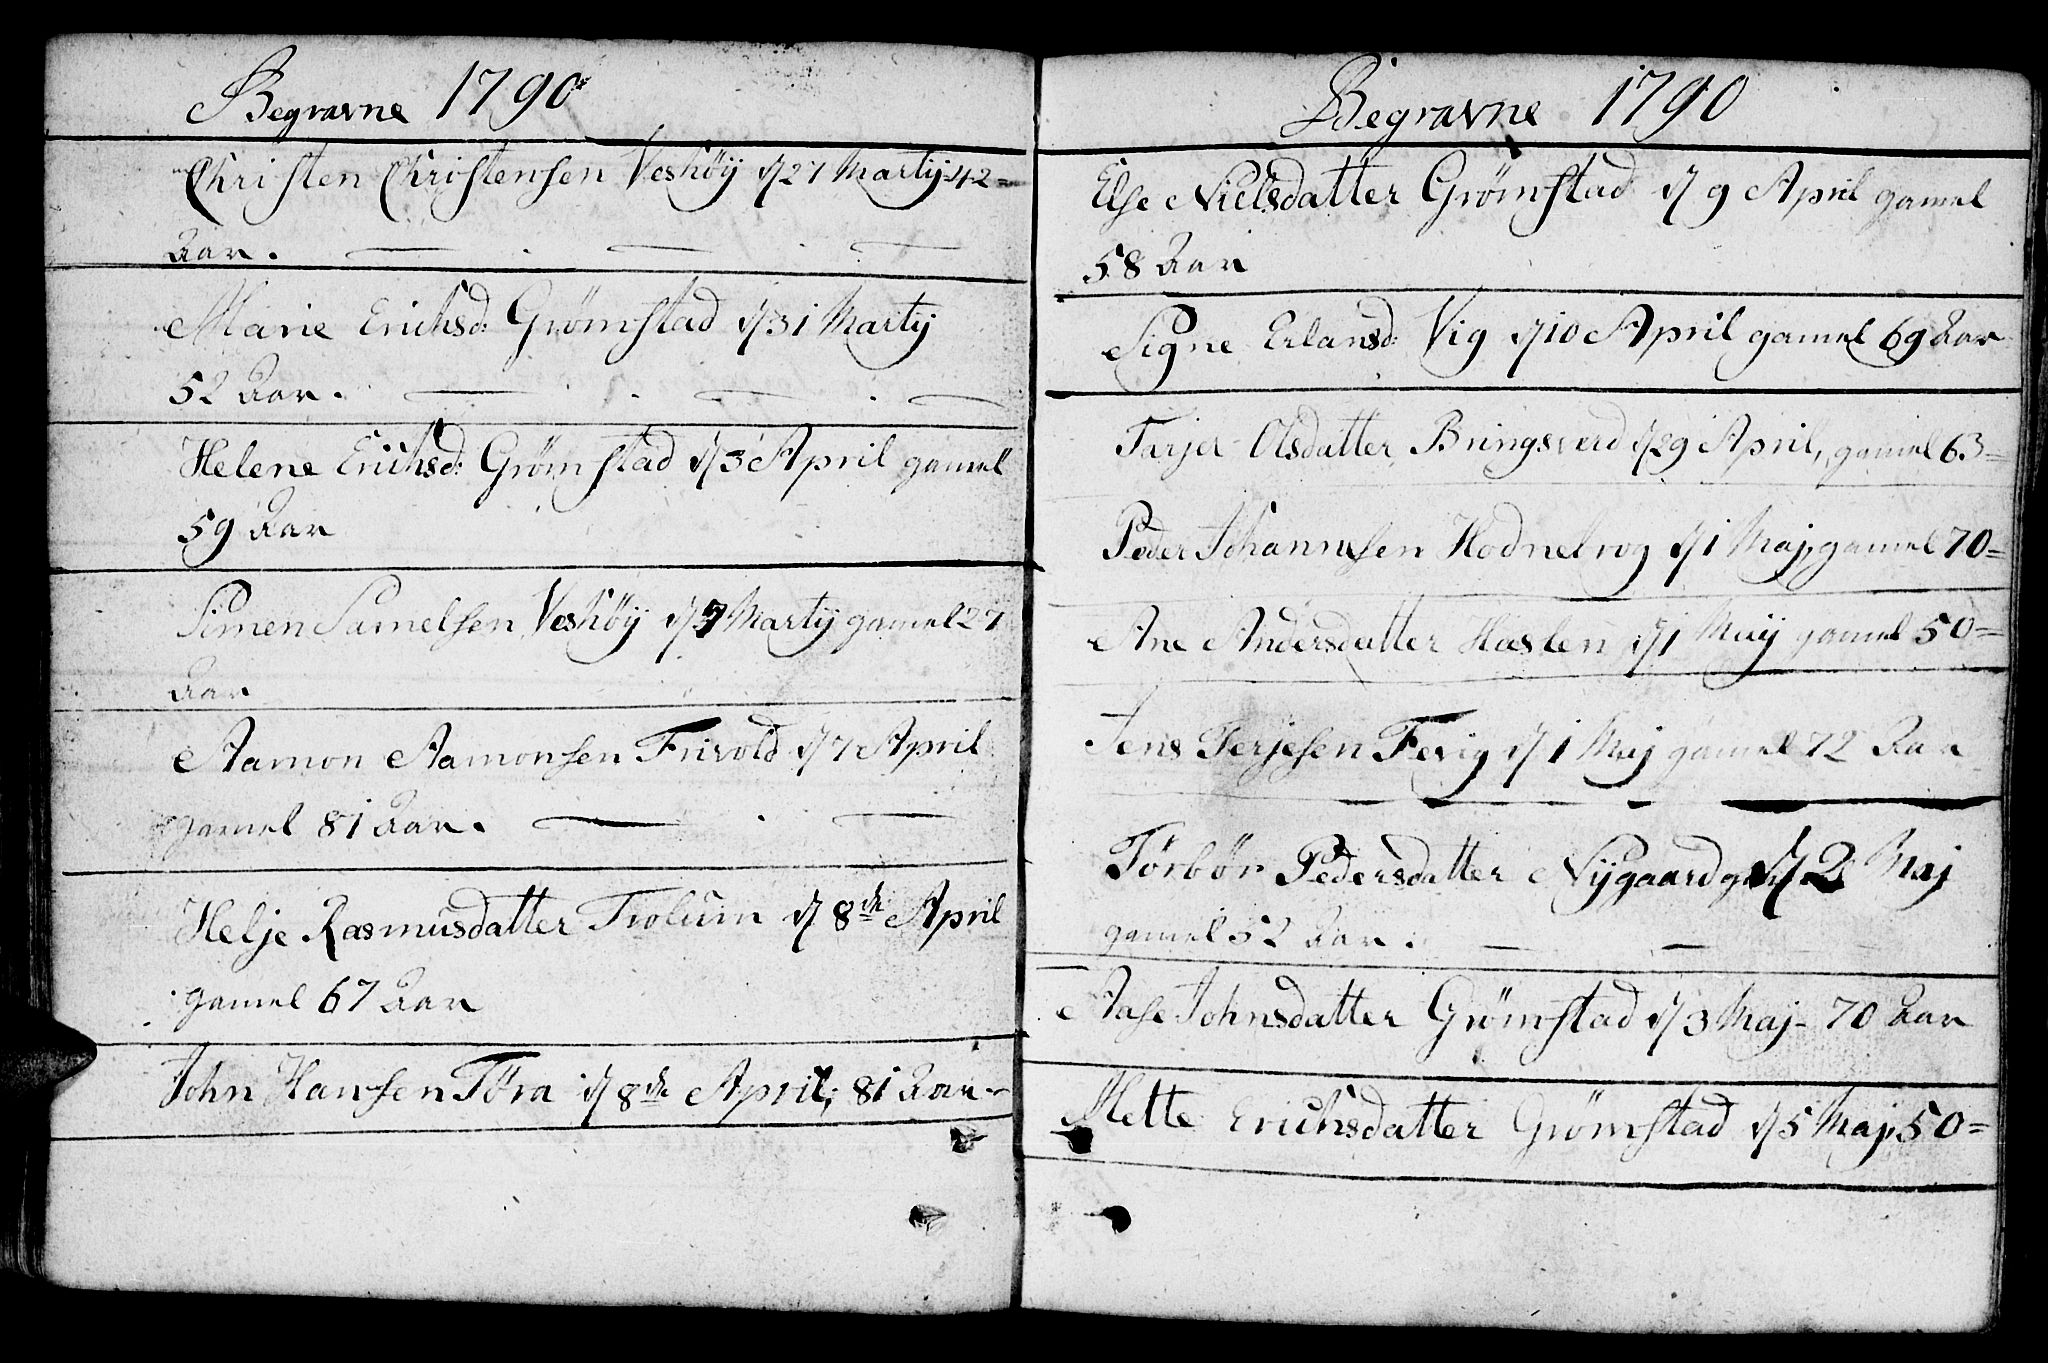 Begravne 1790
Christen Christensen Veshøÿ d 27 Martÿ 42=
Aar.
Marie Erichsd: Grømstad d 31 Martÿ
52 Aar.
Helene Erichsd: Grømstad d 3 April gamel
59 Aar
Simen Samelsen Veshøÿ d Martÿ gamel 27
Aar
Aamon Aamonsen Frivold d 7 April
gamel 81 Aar.
Helje Rasmusdatter Trolum d 8de April
gamel 67 Aar
John Hansen Tøra d 8de April; 81 Aar
Begravne 1790
Else Nielsdatter Grømstad d 9 April gamel
58 Aar
Signe Erlansd: Vig d 10 April gamel 69 Aar
Tarjer Olsdatter Bringsverd d 29 April, gamel 63=
Peder Johannesen Hodnebrog d 1 Maj, gamel 70=
Ane Andersdatter Haslen d 1 Maÿ gamel 50=
Jens Terjesen Fevig d 1 Maj gamel 72 Aar
Tørbør Pedersdatter Nÿgaard d 2 Maj
gamel 52 Aar.
Aase Johnsdatter Grømstad d 3 Maj- 70 Aar
Mette Erichsdatter Grømstad d 5 Maj, 50=